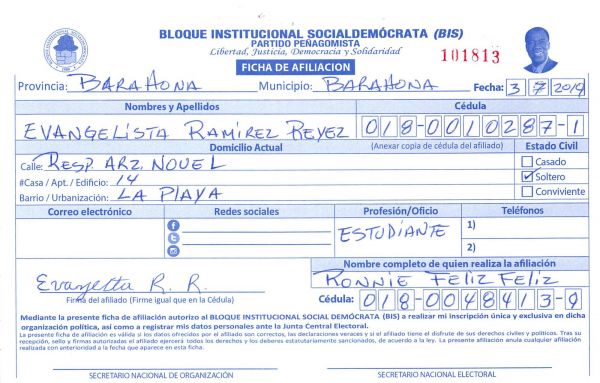 BLOQUE INSTITUCIONAL SOCIALDEMÓCRATA (BIS)
PARTIDO PEÑAGOMISTA
Libertad, Justicia, Democracia y Solidaridad
101813
FICHA DE AFILIACION
Provincia: BARAHONA Municipio: BARAHONA Fecha: 3 7 2019
Nombres y Apellidos Cédula
EVANGELISTA RAMIREZ REYEZ 018-0010287-1
Domicilio Actual (Anexar copia de cédula del afiliado) Estado Civil
Calle: RESP. ARZ. NOUEL Casado
#Casa / Apt. / Edificio: 14 Soltero
Barrio / Urbanización: LA PLAYA Conviviente
Correo electrónico Redes sociales Profesión/Oficio Teléfonos
ESTUDIANTE 1)
2)
Nombre completo de quien realiza la afiliación
RONNIE FELIZ FELIZ
R. R.
Firma del afiliado (Firme igual que en la Cédula) Cédula: 018-0048413-9
Mediante la presente ficha de afiliación autorizo al BLOQUE INSTITUCIONAL SOCIAL DEMÓCRATA (BIS) a realizar mi inscripción única y exclusiva en dicha
organización política, así como a registrar mis datos personales ante la Junta Central Electoral.
La presente ficha de afiliación es válida si los datos ofrecidos por el afiliado son correctos, las declaraciones veraces y si el afiliado tiene el disfrute de sus derechos civiles y políticos. Tras su
recepción, sello y firmas autorizadas el afiliado ejercerá todos los derechos y los deberes estatutariamente sancionados, de acuerdo a la ley. La presente afiliación anula cualquier afiliación
realizada con anterioridad a la fecha que aparece en esta ficha.
SECRETARIO NACIONAL DE ORGANIZACIÓN SECRETARIO NACIONAL ELECTORAL